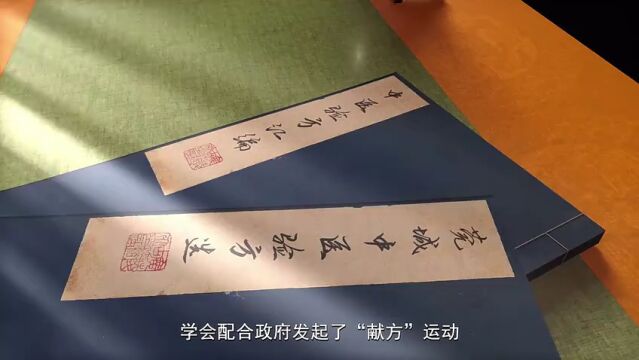 中医验方汇编
莞城中医验方选
学会配合政府发起了“献方”运动